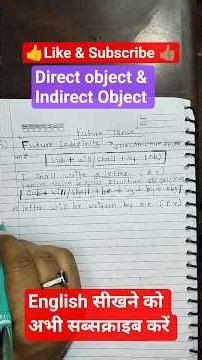 👍Like & Subscribe 👍
Direct object &
Indirect Object
Future Tense
Future Indefinite
[Sub + will/shall + v1 + Ob]
I shall write a letter (A.V)
[Sub + will/shall + be + v3 + by + obj]
A letter will be written by me (P.V)
English सीखने को
अभी सब्सक्राइब करें